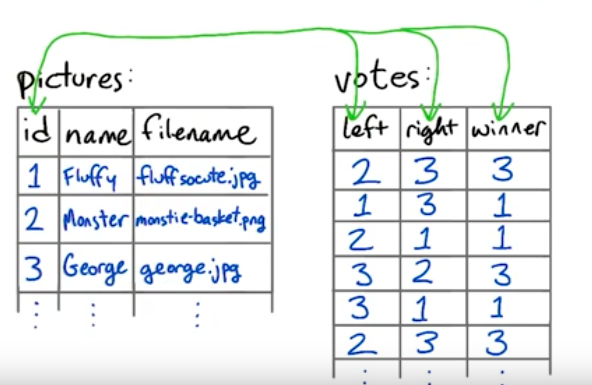 pictures:
id name filename
1 Fluffy fluffsocute.jpg
2 Monster monstie-basket.png
3 George george.jpg
votes:
left right winner
2 3 3
1 3 1
2 1 1
3 2 3
3 1 1
2 3 3